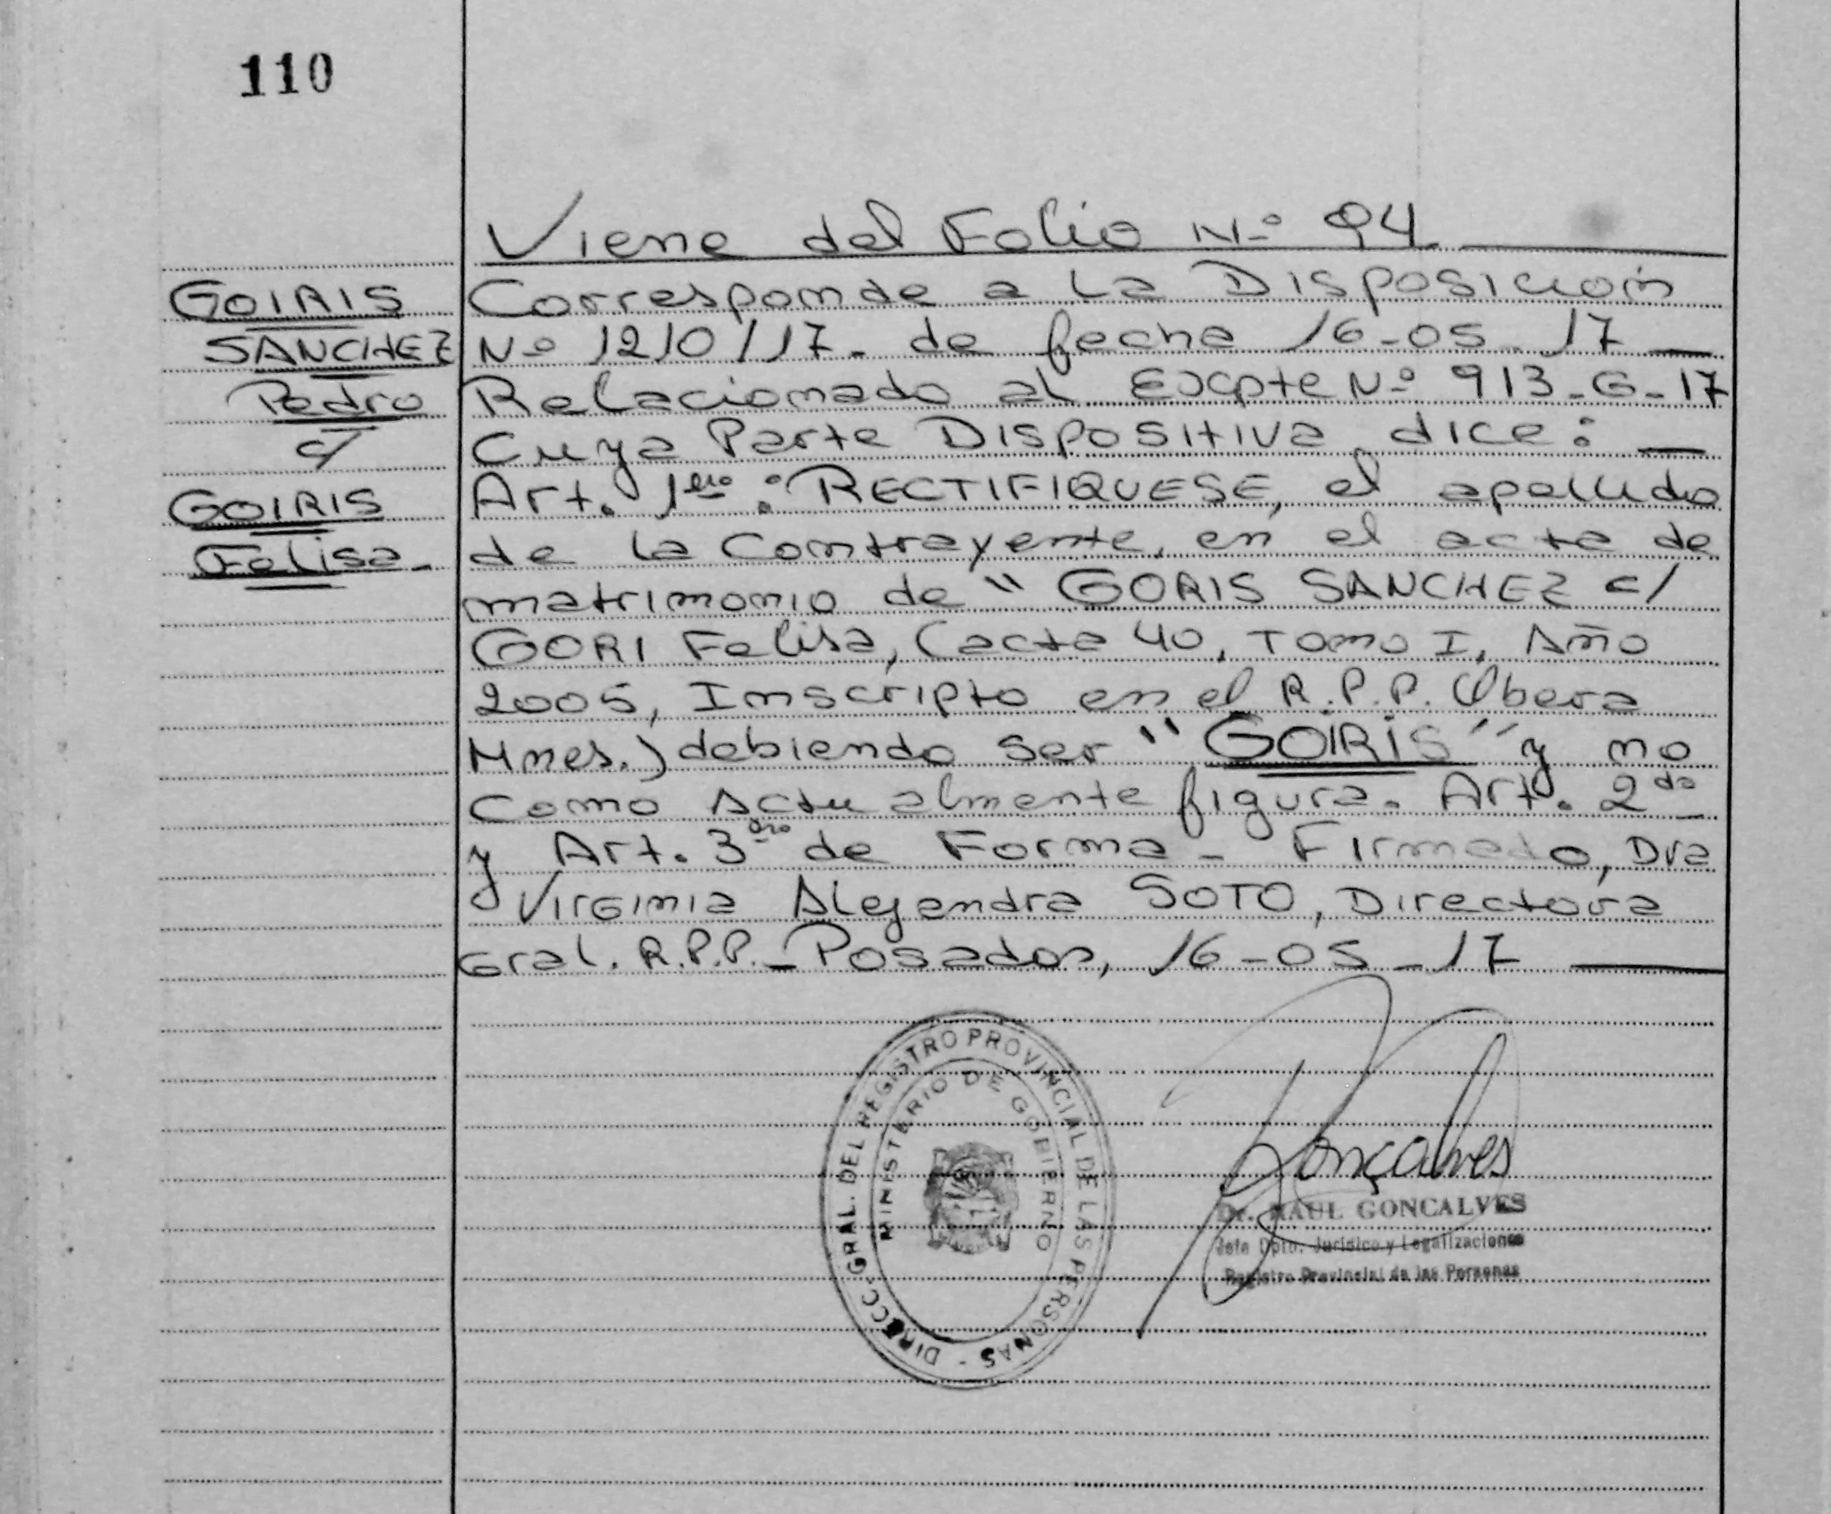 110
Viene del Folio Nº 94
GOIRIS
SANCHEZ
Pedro
c/
GOIRIS
Felisa.
Corresponde a La Disposición
Nº 1210/17. de fecha 16-05-17
Relacionado al Excpte Nº 913-G-17
Cuya Parte Dispositiva dice:
Art. 1ero: RECTIFIQUESE, el apellido
de la Contrayente, en el acta de
matrimonio de " GORIS SANCHEZ c/
GORI Felisa, (acta 40, Tomo I, Año
2005, Inscripto en el R.P.P. Obera
Mnes.) debiendo ser "GOIRIS" y no
como actualmente figura. Art. 2do
y Art. 3ero de Forma - Firmado, Dra
Virginia Alejandra SOTO, Directora
Gral. R.P.P. - Posadas, 16-05-17
DIRECC. GRAL. DEL REGISTRO PROVINCIAL DE LAS PERSONAS -
MINISTERIO DE GOBIERNO
Gonçalves
Dr. RAUL GONCALVES
Jefe Dpto. Jurídico y Legalizaciones
Registro Provincial de las Personas